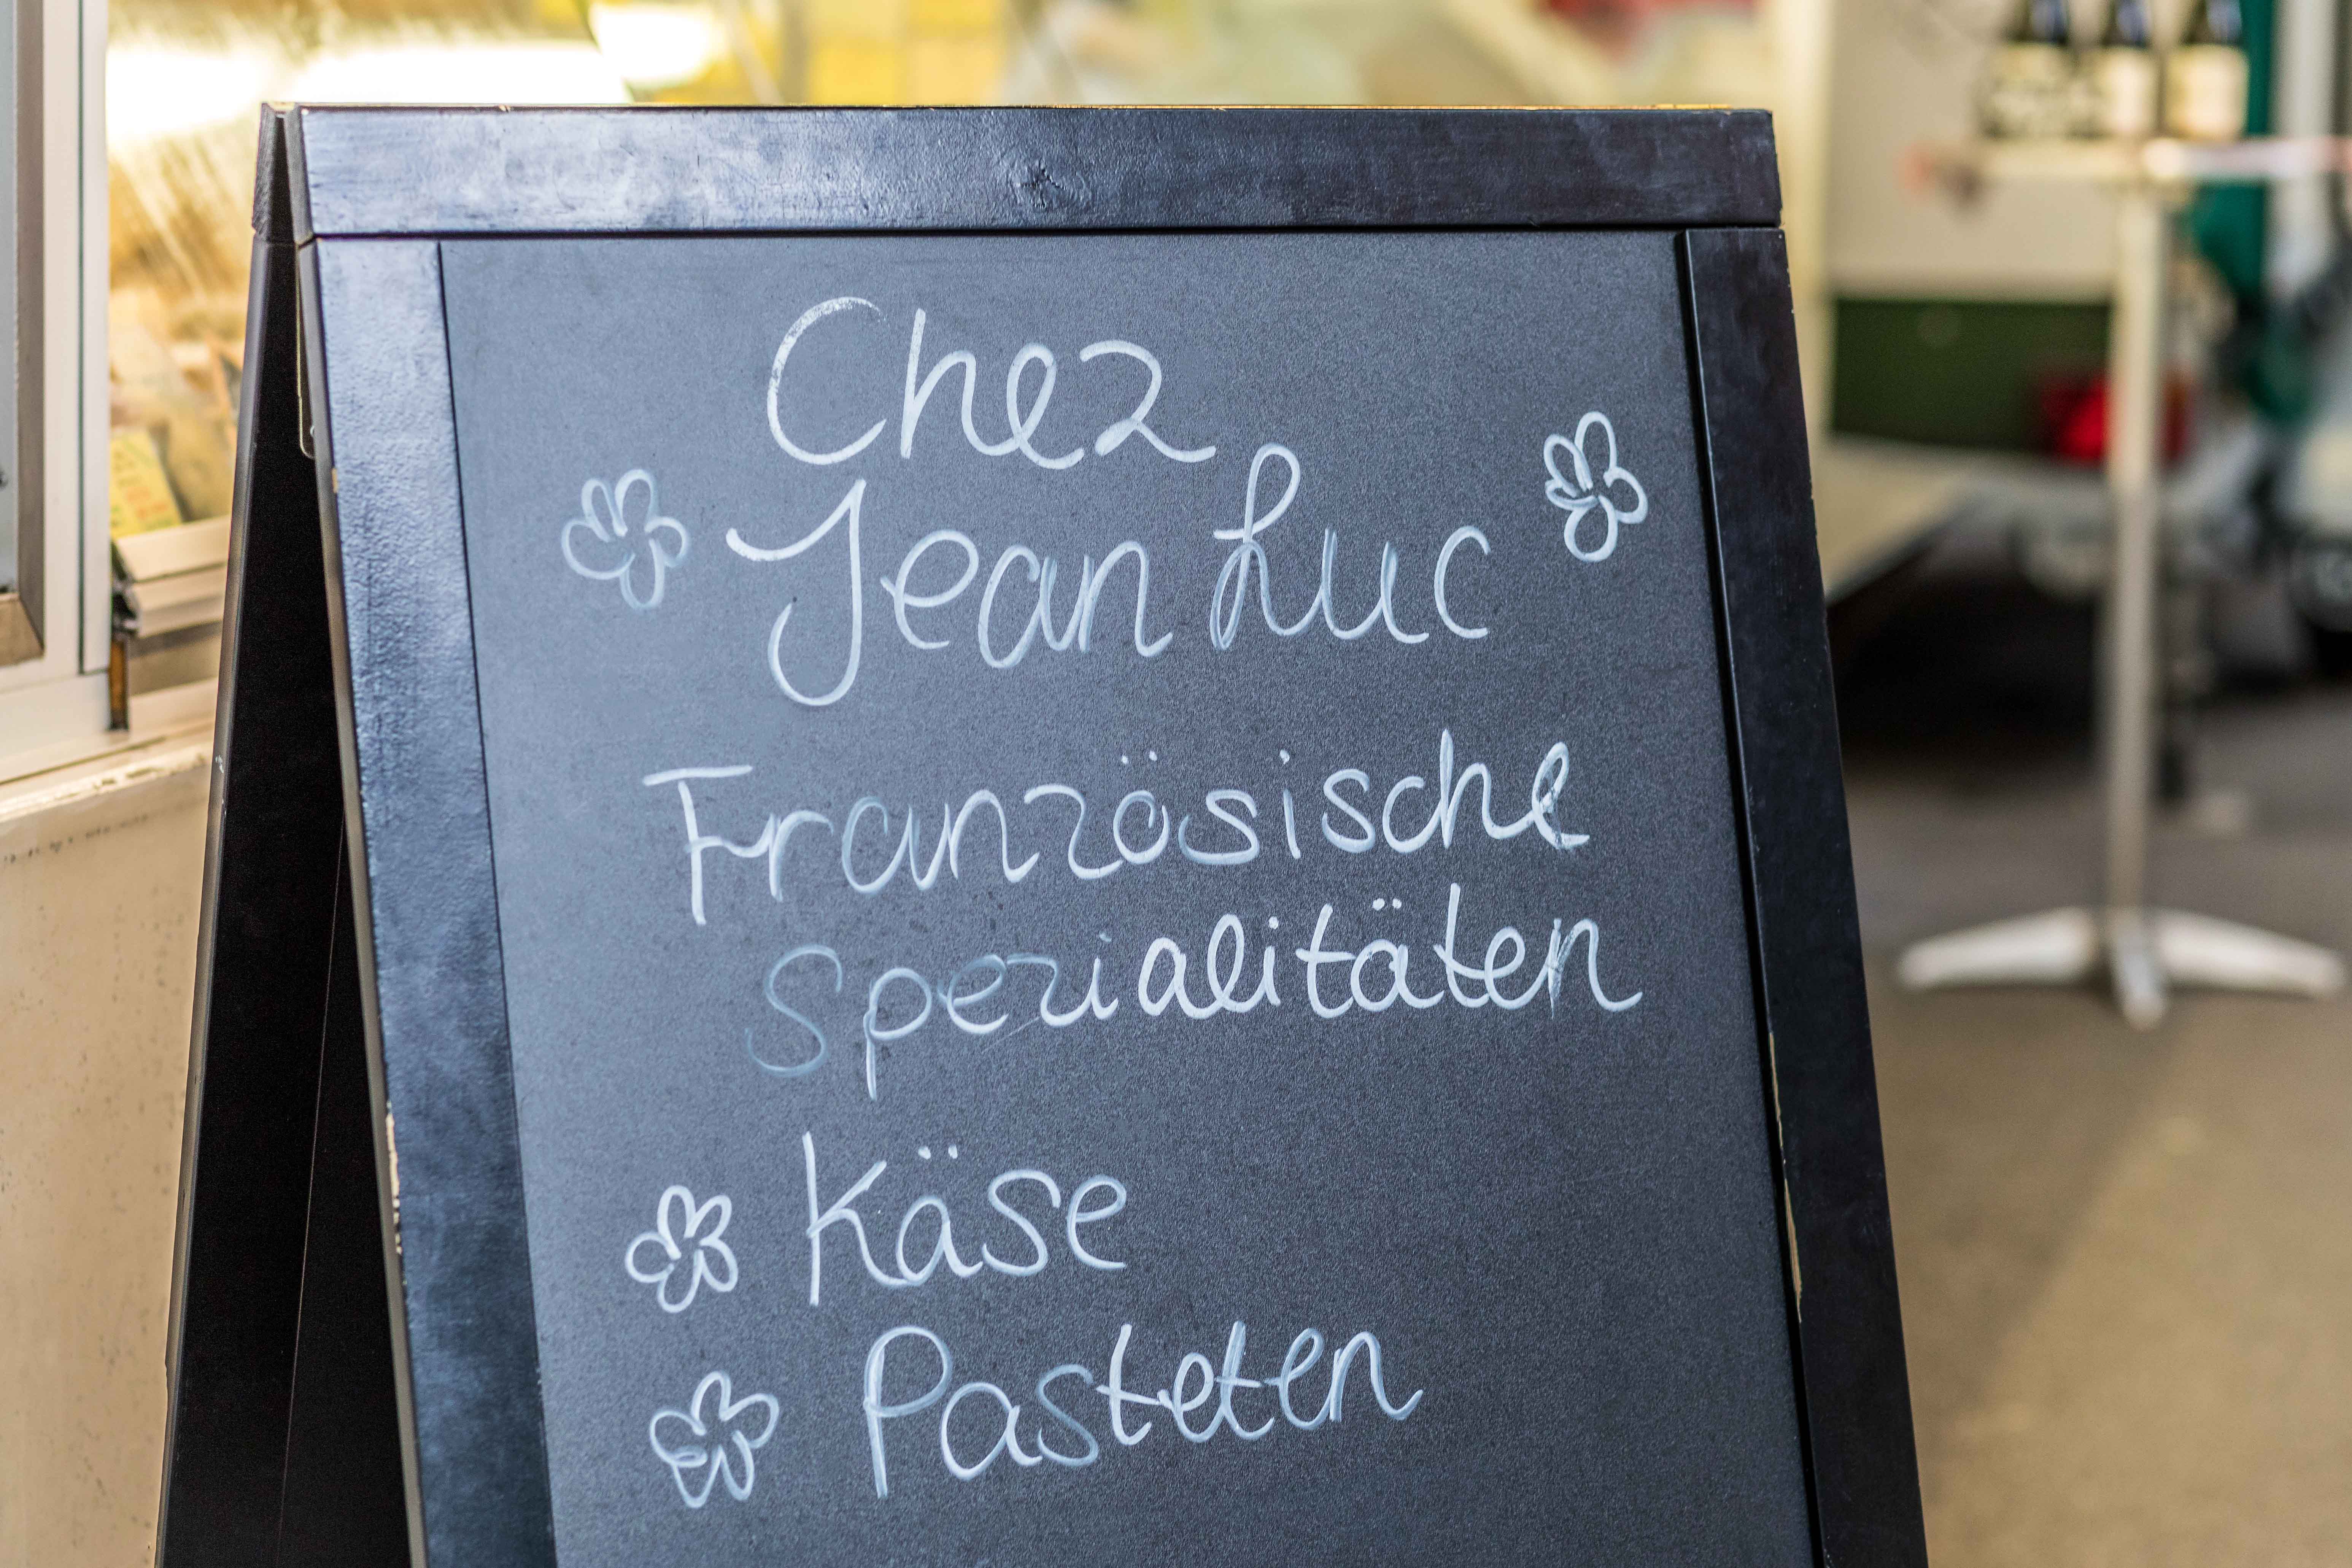 Chez
Jean Luc
Französische
Spezialitäten
Käse
Pasteten